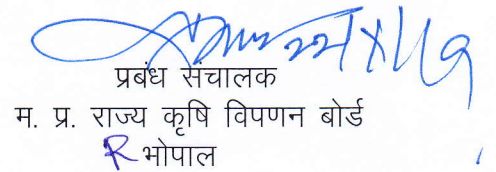 प्रबंध संचालक
म. प्र. राज्य कृषि विपणन बोर्ड
भोपाल